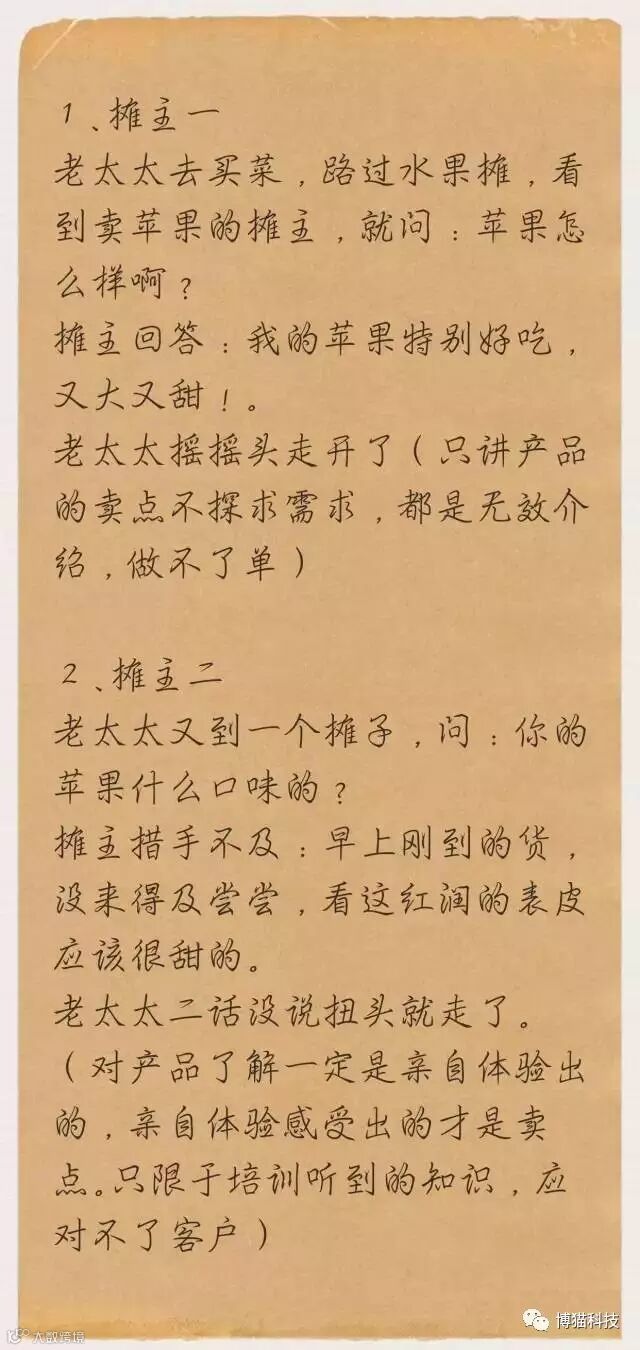 1、摊主一
老太太去买菜，路过水果摊，看
到卖苹果的摊主，就问：苹果怎
么样啊？
摊主回答：我的苹果特别好吃，
又大又甜！。
老太太摇摇头走开了（只讲产品
的卖点不探求需求，都是无效介
绍，做不了单）
2、摊主二
老太太又到一个摊子，问：你的
苹果什么口味的？
摊主措手不及：早上刚到的货，
没来得及尝尝，看这红润的表皮
应该很甜的。
老太太二话没说扭头就走了。
（对产品了解一定是亲自体验出
的，亲自体验感受出的才是卖
点。只限于培训听到的知识，应
对不了客户）
博猫科技
大数跨境